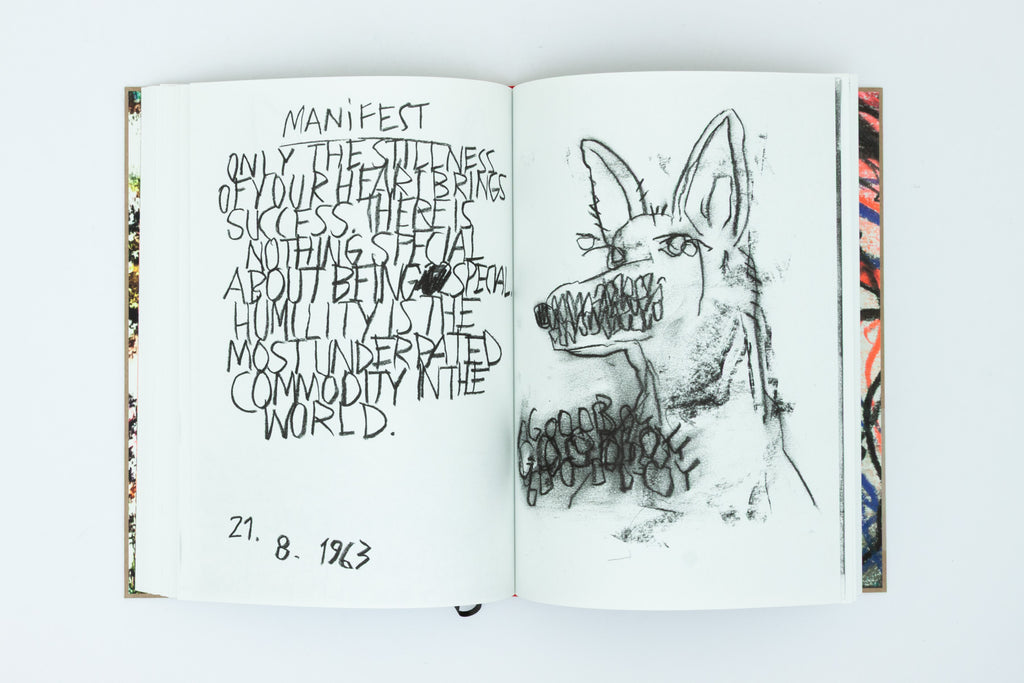 MANiFEST
ONLY THE STILLNESS
OF YOUR HEART BRINGS
SUCCESS. THERE IS
NOTHING SPECIAL
ABOUT BEING SPECIAL
HUMILITY IS THE
MOST UNDERRATED
COMMODITY IN THE
WORLD.
21. 8. 1963